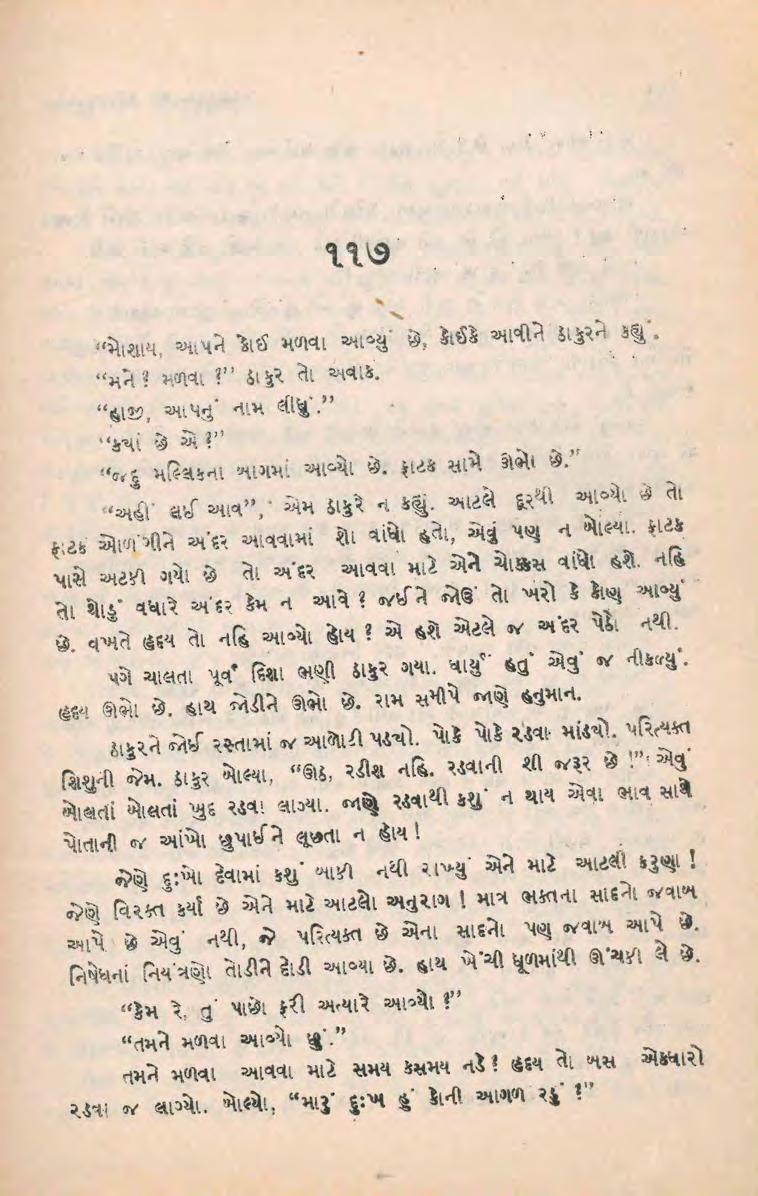 ૧૧૭
“મોશાય, આપને કોઈ મળવા આવ્યું છે, કોઈકે આવીને ઠાકુરને કહ્યું.
“મને ? મળવા ?” ઠાકુર તો અવાક.
“હાજી, આપનું નામ લીધું.”
“કયાં છે એ ?”
“જદુ મલ્લિકના બાગમાં આવ્યો છે. ફાટક સામે ઊભો છે.”
“અહીં લઈ આવ”, એમ ઠાકુરે ન કહ્યું. આટલે દૂરથી આવ્યો છે તો
ફાટક ઓળંગીને અંદર આવવામાં શો વાંધો હતો, એવું પણ ન બોલ્યા. ફાટક
પાસે અટકી ગયો છે તો અંદર આવવા માટે એને ચોક્કસ વાંધો હશે. નહિ
તો થોડું વધારે અંદર કેમ ન આવે ? જઈને જોઉં તો ખરો કે કોણ આવ્યું
છે. વખતે હૃદય તો નહિ આવ્યો હોય ? એ હશે એટલે જ અંદર પેઠો નથી.
પગે ચાલતા પૂર્વ દિશા ભણી ઠાકુર ગયા. ધાર્યું હતું એવું જ નીકળ્યું.
હૃદય ઊભો છે. હાથ જોડીને ઊભો છે. રામ સમીપે જાણે હનુમાન.
ઠાકુરને જોઈ રસ્તામાં જ આળોટી પડયો. પોકે પોકે રડવા માંડયો. પરિત્યક્ત
શિશુની જેમ. ઠાકુર બોલ્યા, “ઊઠ, રડીશ નહિ. રડવાની શી જરૂર છે !” એવું
બોલતાં બોલતાં ખુદ રડવા લાગ્યા. જાણે રડવાથી કશું ન થાય એવા ભાવ સાથે
પોતાની જ આંખો છુપાઈને લૂછતા ન હોય !
જેણે દુ:ખો દેવામાં કશું બાકી નથી રાખ્યું એને માટે આટલી કરુણા !
જેણે વિરક્ત કર્યા છે એને માટે આટલો અનુરાગ ! માત્ર ભક્તના સાદનો જવાબ
આપે છે એવું નથી, જે પરિત્યક્ત છે એના સાદનો પણ જવાબ આપે છે.
નિષેધનાં નિયંત્રણો તોડીને દોડી આવ્યા છે. હાથ ખેંચી ધૂળમાંથી ઊંચકી લે છે.
“કેમ રે, તું પાછો ફરી અત્યારે આવ્યો ?”
“તમને મળવા આવ્યો છું.”
તમને મળવા આવવા માટે સમય કસમય નડે ? હૃદય તો બસ એકધારો
રડવા જ લાગ્યો. બોલ્યો, “મારું દુ:ખ હું કોની આગળ રડું ?”